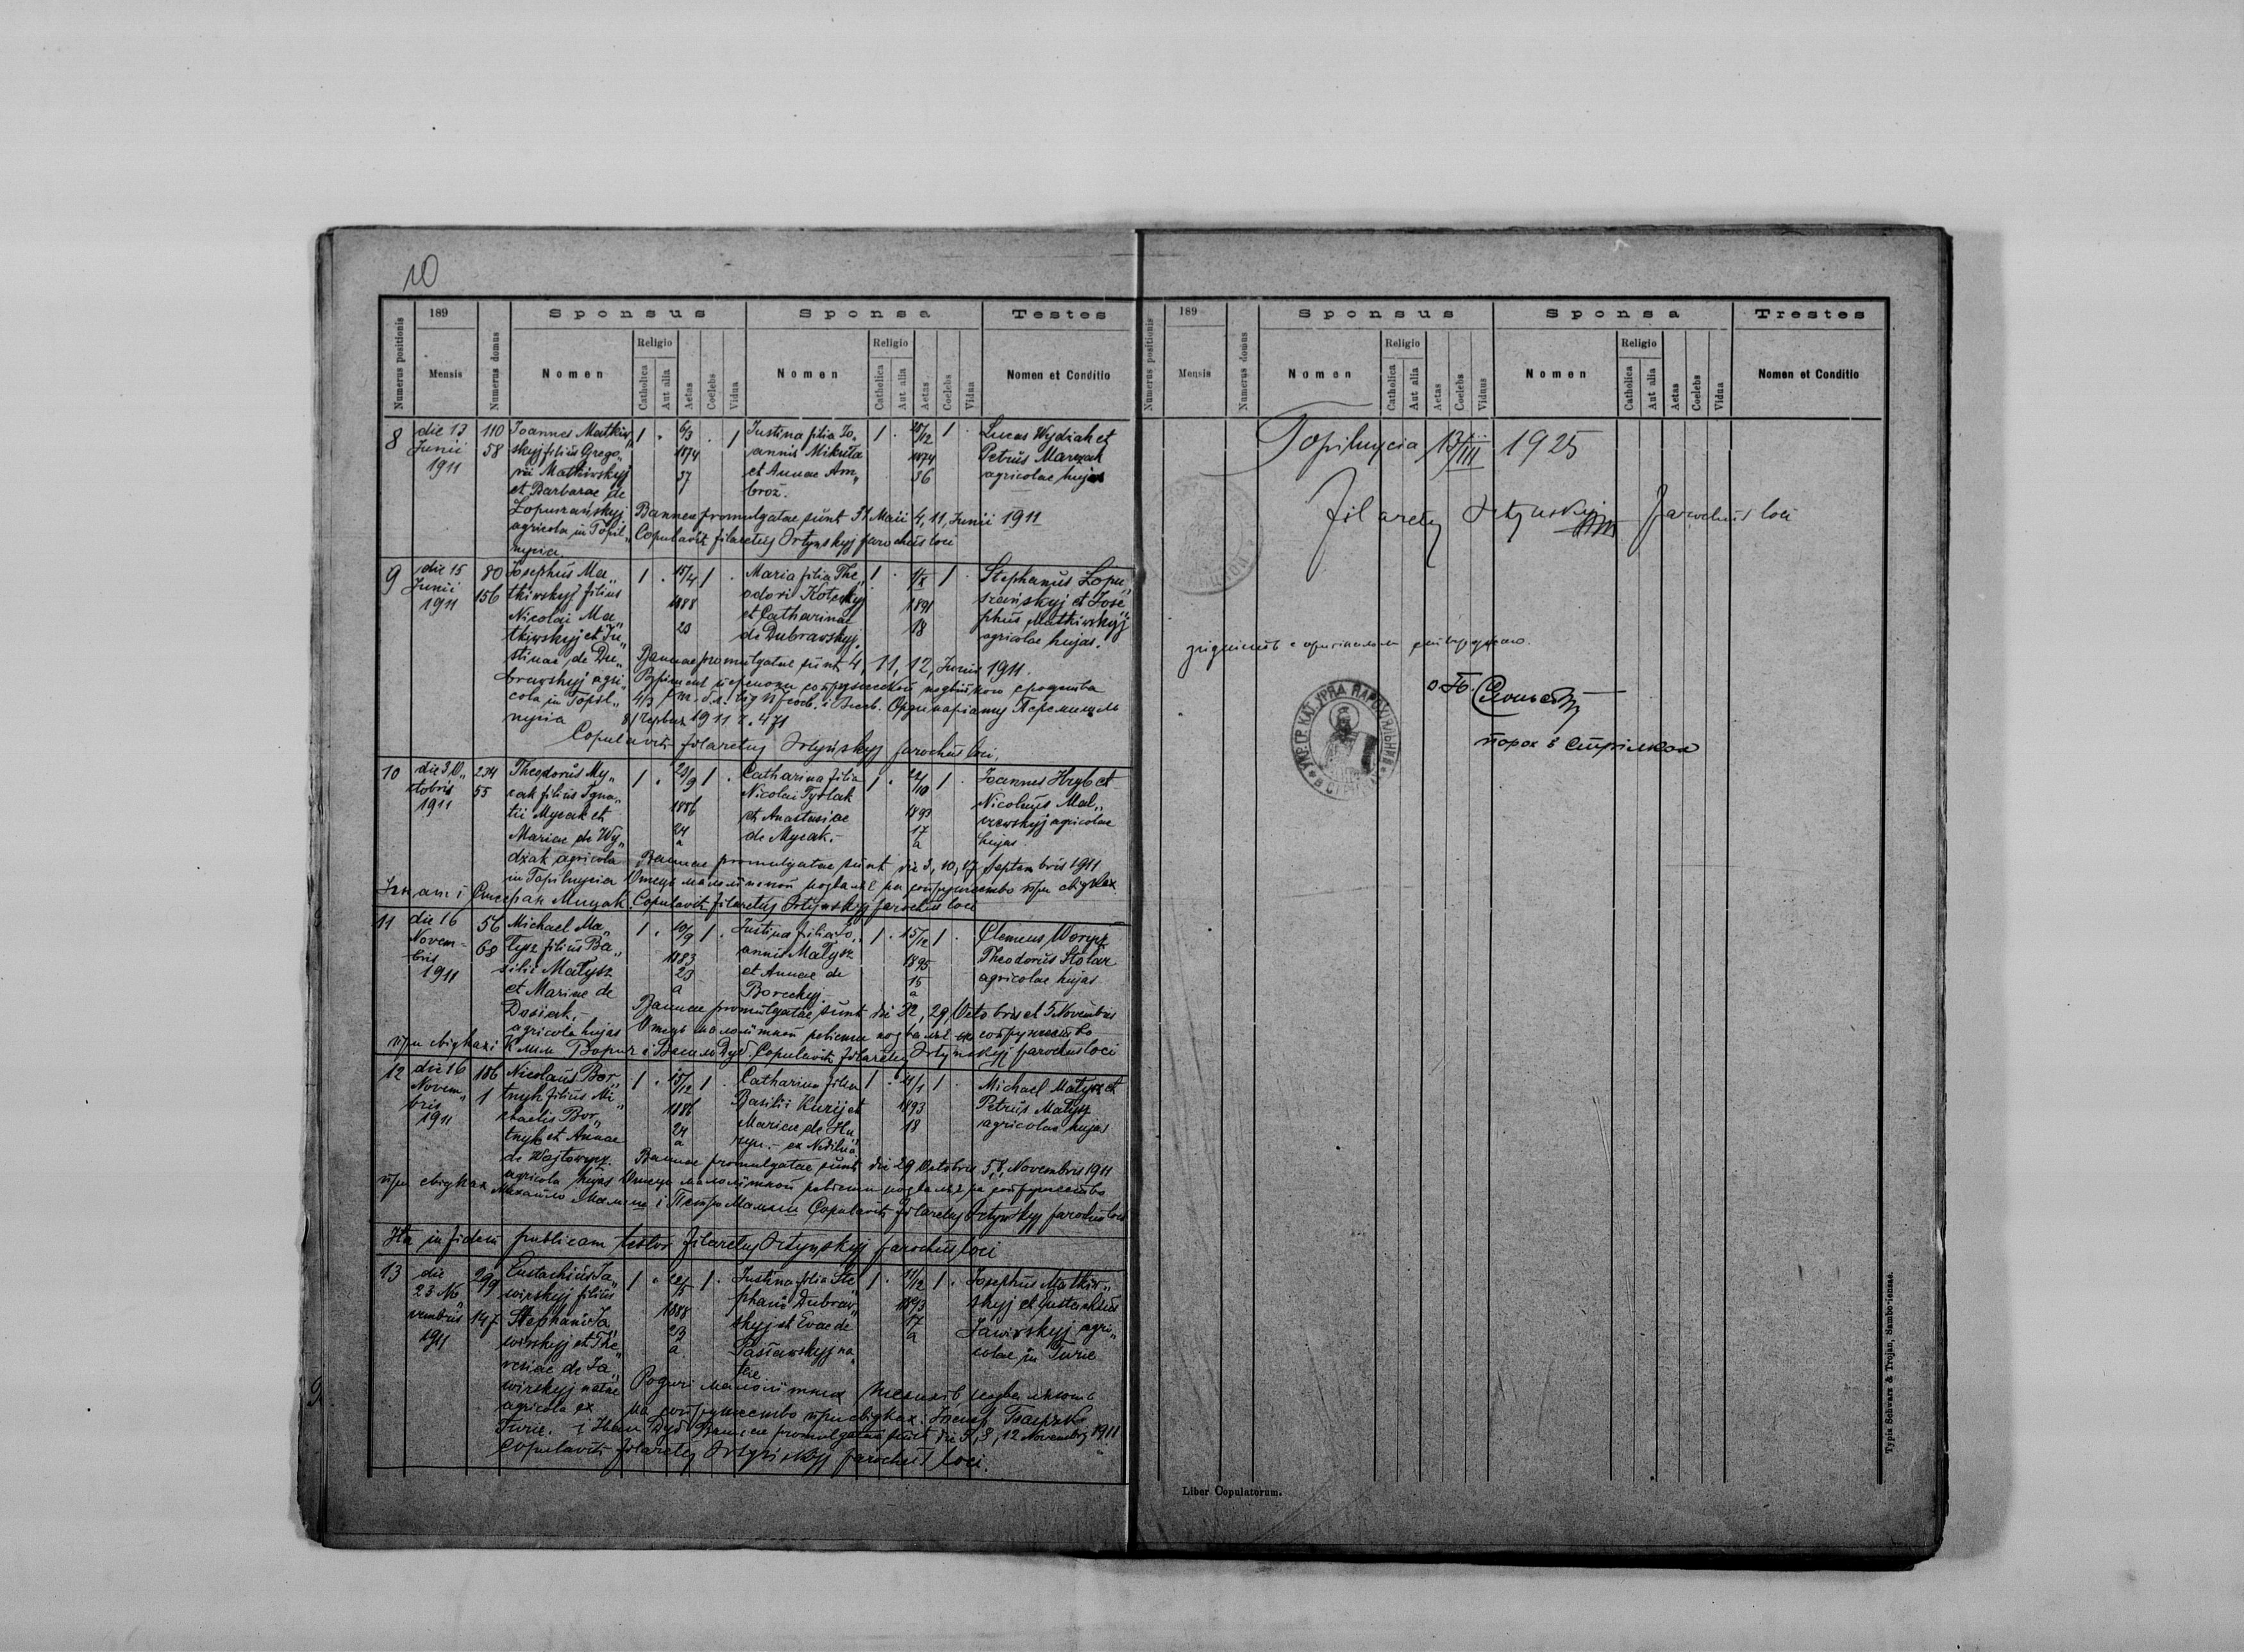 10
Numerus positionis
189
Mensis
Numerus domus
Sponsus
Nomen
Religio
Catholica
Aut alia
Aetas
Coelebs
Vidua
Sponsa
Nomen
Religio
Catholica
Aut alia
Aetas
Coelebs
Vidua
Testes
Nomen et Conditio
8
die 13
Junii
1911
110
58
Joannes Matkiw„
skyj filius Grego„
rii Matkiwskyj
et Barbarae de
Łopuszańskyj
agricola in Topil„
nycia.
1 . 6/3 . 1
1874
37
Justina filia Jo„
annis Mikuła
et Annae Am„
broż.
1 . /12 1 .
1874
36
Lucas Wydiah et
Petrus Marczak
agricolae hujas
Bannae promulgatae sunt 31 Maii 4, 11, Junii 1911
Copulavit filaretus Ortynskyj parochus loci
9
die 15
Junii
1911
80
156
Josephus Ma„
tkiwskyj filius
Nicolai Ma„
tkiwskyj et Ju„
stinae de Du„
brawskyj agri„
cola in Topil„
nycia
1 . 15/4 1 .
1888
23
Maria filia The„
odori Koteckyj
et Catharinae
de Dubrawskyj.
1 . 1/X 1 .
1891
18
Stephanus Łopu„
szańskyj et Jose„
phus Matkiwskyj
agricolae hujas.
Bannae promulgatae sunt 4, 11, 12, Junii 1911.
Ординаріату Перемишль
1911 ч. 471
Copulavit filaretus Ortyńskyj parochus loci.
10
die 3 O„
ctobris
1911
234
55
Theodorus My„
cak filius Igna„
tii Mycak et
Mariae de Wy„
dżak agricola
in Topilnycia
1 . 23/9 1 .
1886
24
a
Catharina filia
Nicolai Tyslak
et Anastasiae
de Mycak.-
1 . 22/10 1 .
1893
17
a
Joannes Hryb et
Nicolaus Mal„
czewskyj agricolae
hujas
Bannae promulgatae sunt die 3, 10, 17 Septembris 1911
Отець малолітної позваляє на сопружество при свідках
Ігнат і Стефан Мицак. Copulavit filaretus Ortynskyj parochus loci
11
die 16
Novem-
bris
1911
56
68
Michael Ma„
tysz filius Ba„
silii Matysz
et Mariae de
Dosiak.
agricola hujas
1 . 10/9 1 .
1883
23
a
Justina filia Jo„
annis Matysz
et Annae de
Boreckyj.
1 . 15/12 1 .
1895
15
a
Clemens Worycz
Theodorus Stolar
agricolae hujas
Bannae promulgatae sunt die 22, 29, Octobris et 5 Novembris
Отець малолітної позваляє на сопружество
при свідках: Клим Ворич і Copulavit filaretus Ortynskyj parochus loci
12
die 16
Novem„
bris
1911
186
1
Nicolaus Bor„
tnyk filius Mi„
chaelis Bor„
tnyk et Annae
de Wojtowycz.
agricola hujas
1 . 15/12 1 .
1886
24
a
Catharina filia
Basilii Kurij et
Mariae de Hu„
ex Nedilna
1 . /1 1 .
1893
18
Michael Matysz et
Petrus Matysz
agricolae hujas
Bannae promulgatae sunt die 29 Octobris 5, 8, Novembris 1911
Отець малолітної позваляє на сопружество
при свідках Михайло Матиш і Петро Матиш Copulavit filaretus Ortynskyj parochus loci
Ita in fidem publicam testor filaretus Ortynskyj parochus loci
13
die
23 No„
vembris
1911
299
147
Eustachius Ja„
wirskyj filius
Stephani Ja„
wirskyj et The„
resiae de Ja„
wirskyj natae
agricola ex
Turie.
1 . 22/5 1 .
1888
23
a
Justina filia Ste„
phani Dubraw„
skyj et Evae de
Pasławskyj na„
tae
1 . 11/12 1 .
1893
17
a
Josephus Matkiw„
skyj et Eustachius
Jawirskyj agri„
colae in Turie
Родичі малолітних позваляють
на сопружество при свідках: Йосиф
і Іван Дуб Bannae promulgatae sunt die 5, 8, 12 Novembris 1911
Copulavit filaretus Ortyńskyj parochus loci.
Numerus positionis
189
Mensis
Numerus domus
Sponsus
Nomen
Religio
Catholica
Aut alia
Aetas
Coelebs
Viduus
Sponsa
Nomen
Religio
Catholica
Aut alia
Aetas
Coelebs
Vidua
Trestes
Nomen et Conditio
Topilnycia 13/III 1925
filarety Ortynskyj parochus loci
згідність з оригіналом
парох в Стрілках
УКР. ГР. КАТ. УРЯД ПАРОХІЯЛЬНИЙ
Liber Copulatorum.
Typis Schwarz & Trojan, Samboriensae.